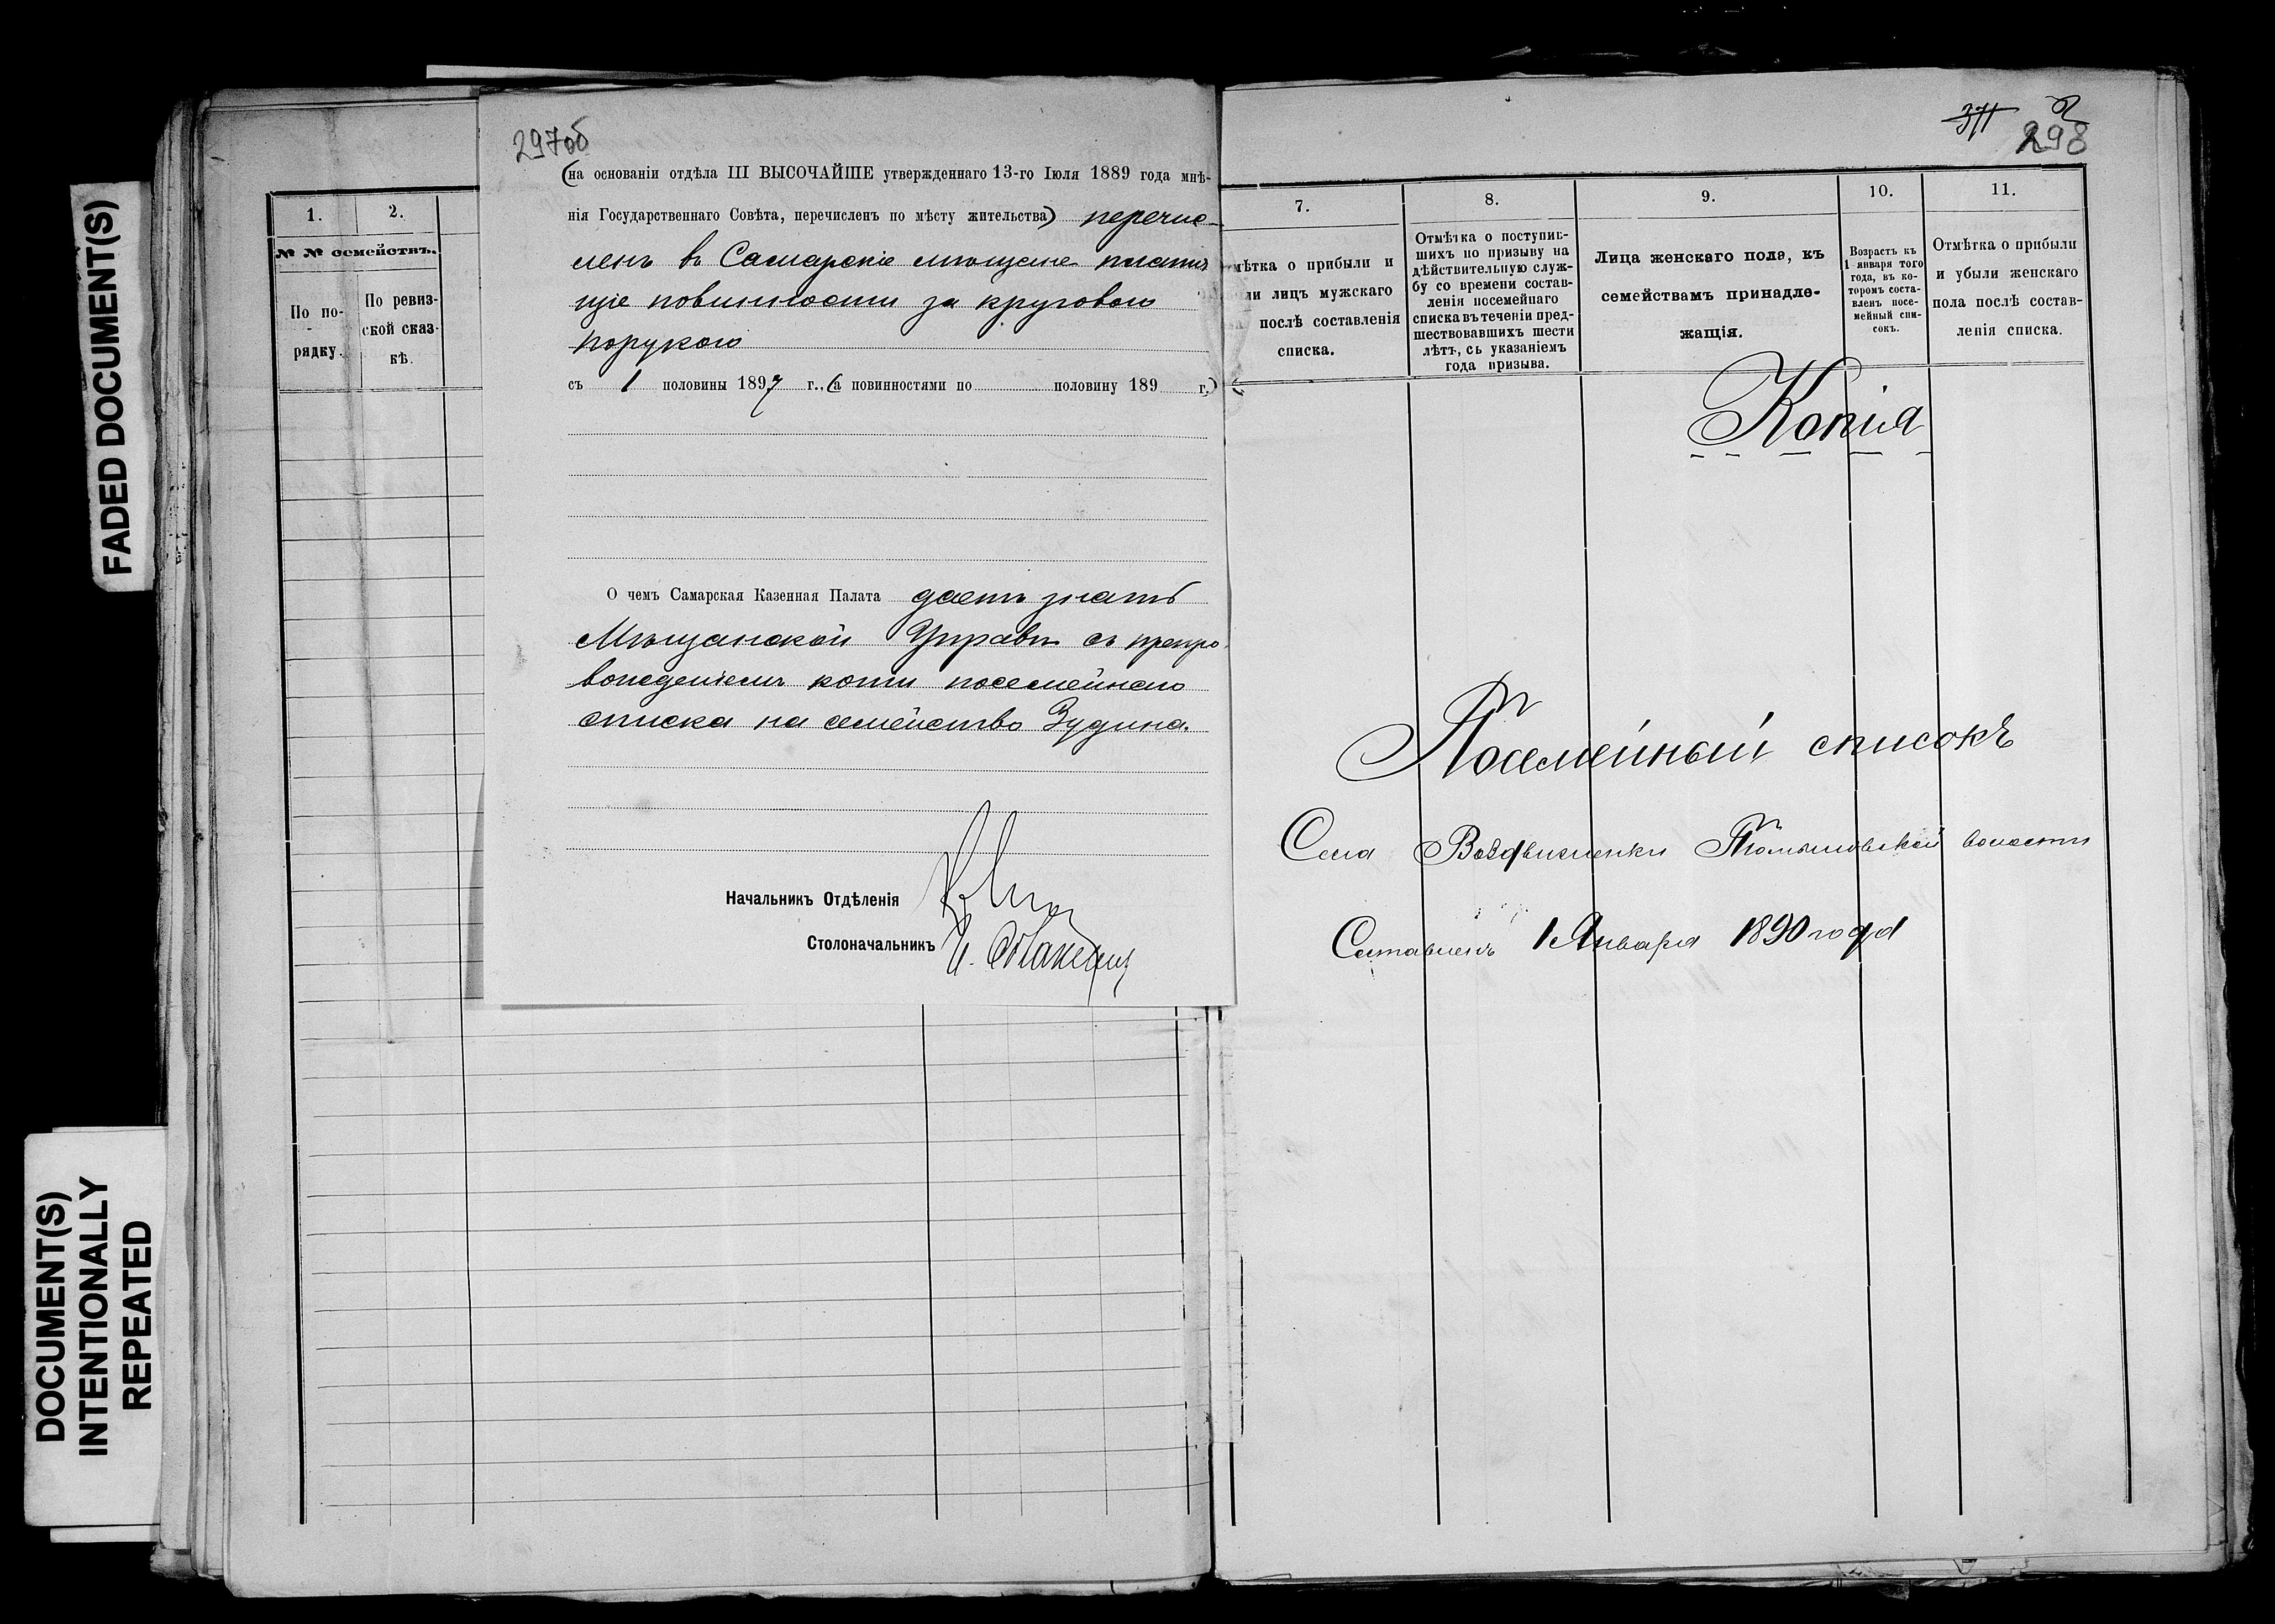 FADED DOCUMENT(S)
DOCUMENT(S)
INTENTIONALLY
REPEATED
1.
2.
№ № семействъ.
По по-
рядку.
По ревиз-
ской сказ-
кѣ.
297об
(на основаніи отдѣла III ВЫСОЧАЙШЕ утвержденнаго 13-го Іюля 1889 года мнѣ-
нія Государственнаго Совѣта, перечисленъ по мѣсту жительства) перечис-
ленъ въ Самарскіе мѣщане платя
щіе повинности за круговою
порукою
съ 1 половины 1897 г., (а повинностями по половину 189 г.)
О чемъ Самарская Казенная Палата даетъ знать
Мѣщанской Управѣ съ препро
вожденіемъ копіи посемейнаго
списка на семейство Зудина.
Начальникъ Отдѣленія
Столоначальникъ
371
298
7.
мѣтка о прибыли и
ли лицъ мужскаго
послѣ составленія
списка.
8.
Отмѣтка о поступив-
шихъ по призыву на
дѣйствительную служ-
бу со времени состав-
ленія посемейнаго
списка въ теченіи пред-
шествовавшихъ шести
лѣтъ, съ указаніемъ
года призыва.
9.
Лица женскаго пола, къ
семействамъ принадле-
жащія.
10.
Возрастъ къ
1 января того
года, въ ко-
торомъ соста-
вленъ посе-
мейный спи-
сокъ.
11.
Отмѣтка о прибыли
и убыли женскаго
пола послѣ состав-
ленія списка.
Копія
Посемейный списокъ
Села Воздвиженки волости
Составленъ 1 Января 1890 года